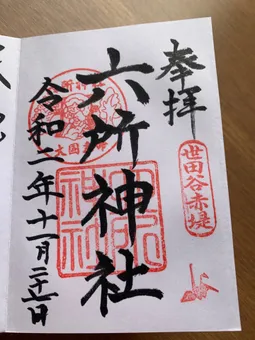 奉拝
世田谷赤堤
六所神社
令和二年十一月二十一日
六所神社